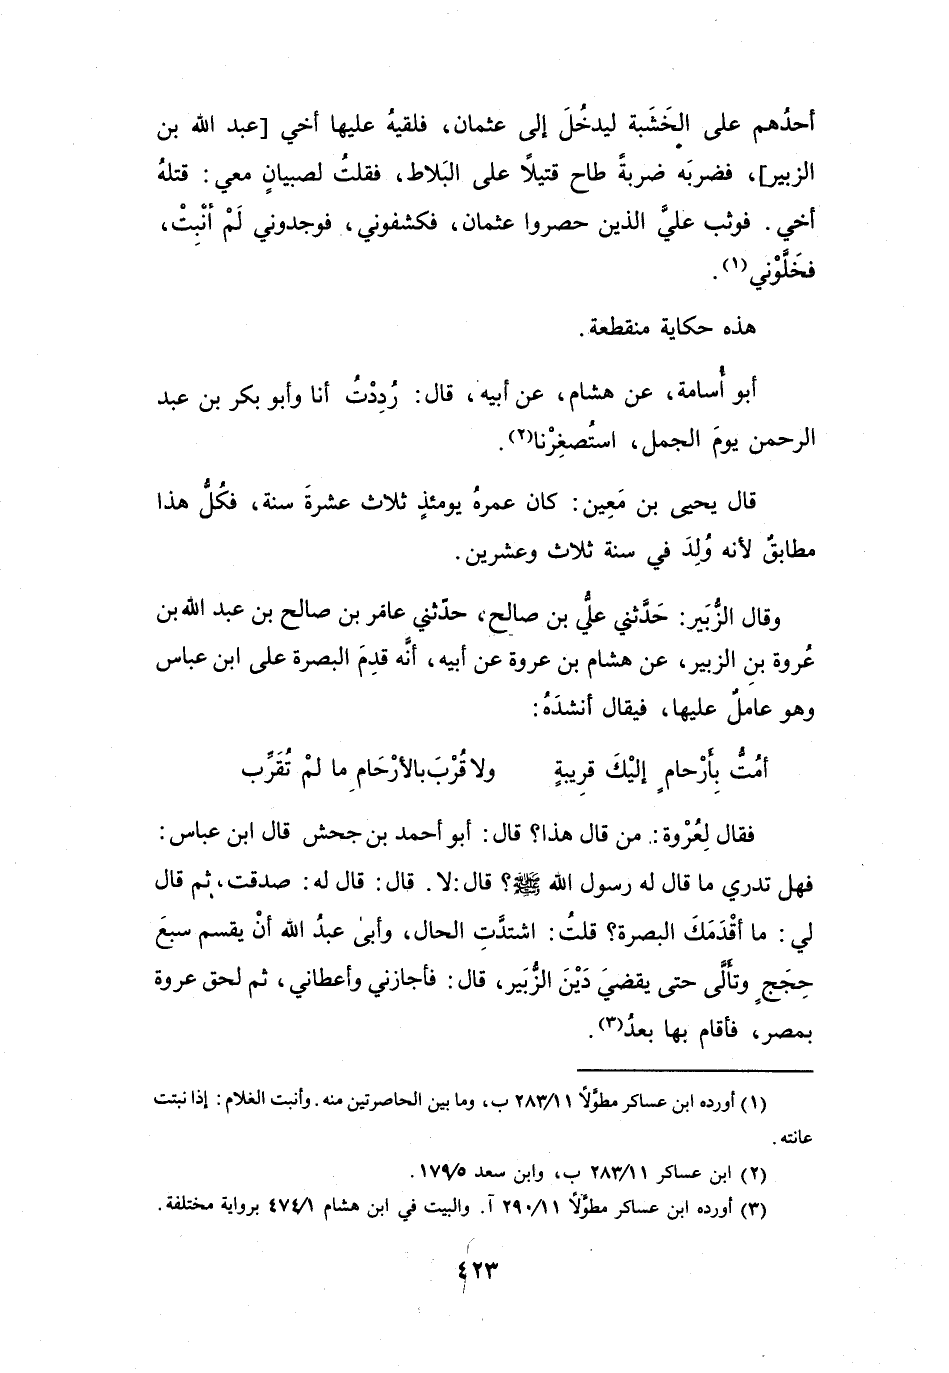 أحدُهم على الخَشَبة ليدخُلَ إلى عثمان، فلقيهُ عليها أخي [عبد الله بن
الزبير]، فضربَه ضربةً طاح قتيلًا على البَلاط، فقلتُ لصبيانٍ معي: قتلهُ
أخي. فوثب عليَّ الذين حصروا عثمان، فكشفوني، فوجدوني لَمْ أنْبِتْ،
فخَلَّوْني(١).
هذه حكاية منقطعة.
أبو أُسامة، عن هشام، عن أبيه، قال: رُدِدْتُ أنا وأبو بكر بن عبد
الرحمن يومَ الجمل، استُصغِرْنا(٢).
قال يحيى بن مَعِين: كان عمرهُ يومئذٍ ثلاث عشرةَ سنة، فكُلُّ هذا
مطابقٌ لأنه وُلِدَ في سنة ثلاث وعشرين.
وقال الزُّبَير: حَدَّثني عليُّ بن صالح، حدّثني عامر بن صالح بن عبد الله بن
عُروة بنِ الزبير، عن هشام بن عروة عن أبيه، أنَّه قدِمَ البصرة على ابن عباس
وهو عاملٌ عليها، فيقال أنشدَهُ:
أمُتُّ بِأَرْحامٍ إليْكَ قريبةٍ ولا قُرْبَ بالأرْحَامِ ما لمْ تُقَرِّب
فقال لِعُرْوة: من قال هذا؟ قال: أبو أحمد بن جحش قال ابن عباس:
فهل تدري ما قال له رسول الله ﷺ؟ قال: لا. قال: قال له: صدقت، ثم قال
لي: ما أقْدَمَكَ البصرة؟ قلتُ: اشتدَّتِ الحال، وأبىٰ عبدُ الله أنْ يقسم سبعَ
حِجَجٍ وتأَلَّى حتى يقضيَ دَيْنَ الزُّبَير، قال: فأجازني وأعطاني، ثم لحق عروة
بمصر، فأقام بها بعدُ(٣).
(١) أورده ابن عساكر مطوَّلًا ٢٨٣/١١ ب، وما بين الحاصرتين منه. وأنبت الغلام: إذا نبتت
عانته.
(٢) ابن عساكر ٢٨٣/١١ ب، وابن سعد ١٧٩/٥.
(٣) أورده ابن عساكر مطوَّلًا ٢٩٠/١١ آ. والبيت في ابن هشام ٤٧٤/١ برواية مختلفة.
٤٢٣